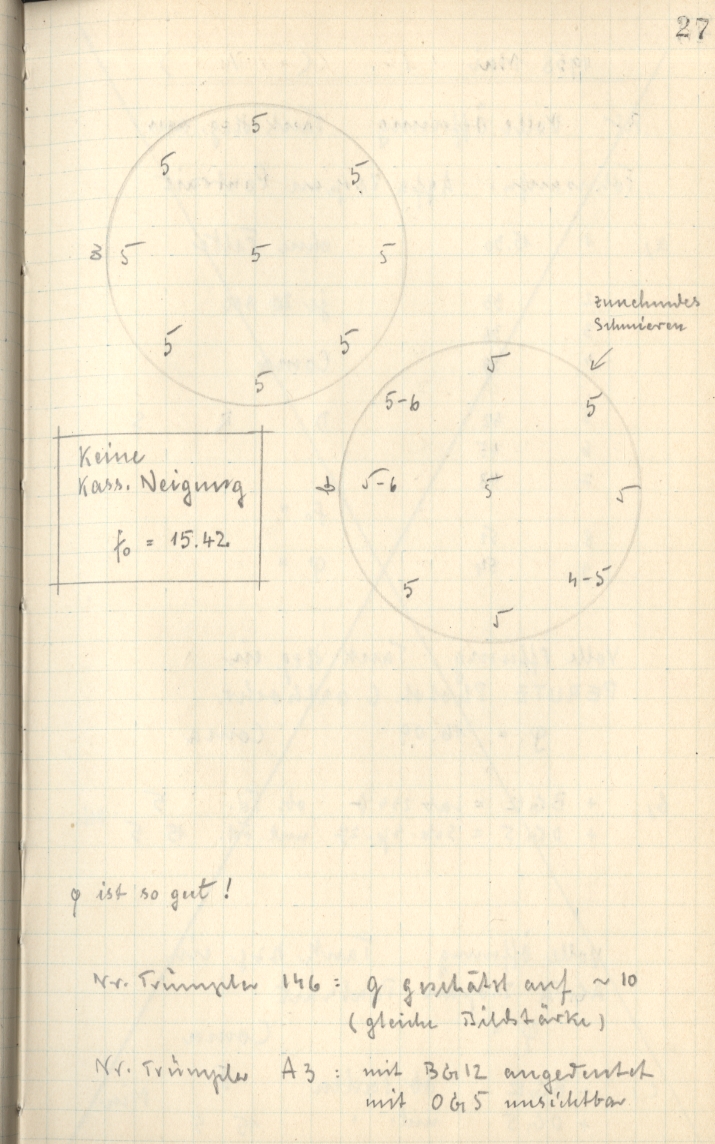 27
5
5 5
5 5 5
5 5
5
zunehmendes
Schmieren
5
5-6 5
5-6 5 5
5 4-5
5
Keine
Kass. Neigung
f0 = 15.42
φ ist so gut!
Nr. Trümpler 146 : g geschätzt auf ~ 10
(gleiche Bildstärke)
Nr. Trümpler A3 : mit BG12 angedeutet
mit OG5 unsichtbar